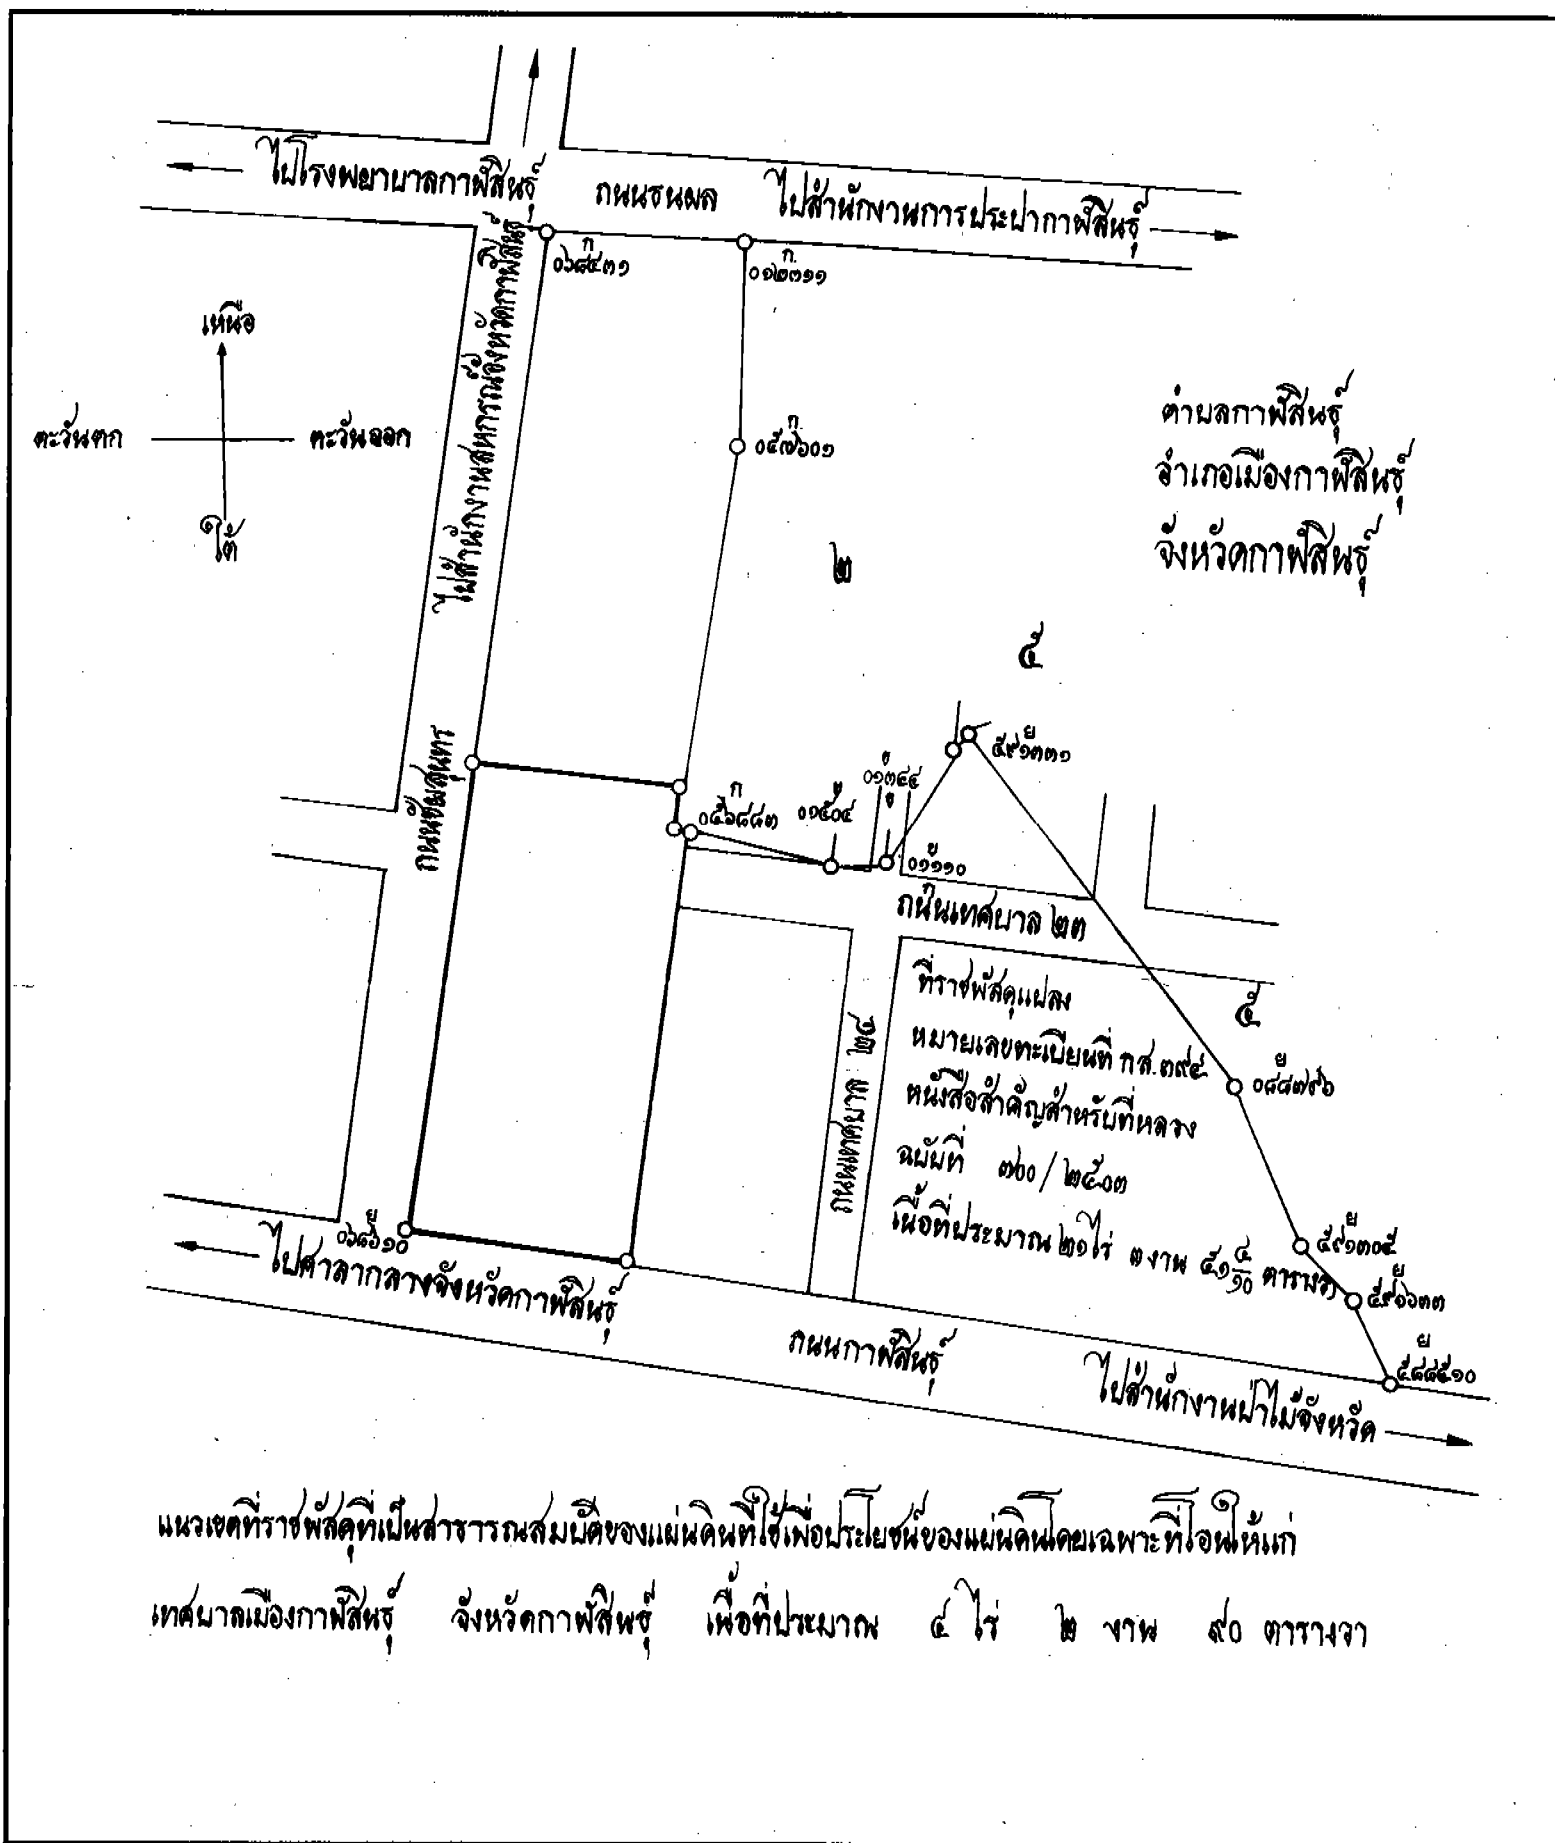 ไปโรงพยาบาลกาฬสินธุ์
ถนนธนผล
ไปสำนักงานการประปากาฬสินธุ์
ก
๐๖๘๕๓๑
ก
๐๑๒๓๑๑
ไปสำนักงานสหกรณ์จังหวัดกาฬสินธุ์
เหนือ
ตะวันตก
ตะวันออก
ใต้
ก
๐๕๗๖๐๑
ตำบลกาฬสินธุ์
อำเภอเมืองกาฬสินธุ์
จังหวัดกาฬสินธุ์
๒
๕
ย
๕๙๑๓๓๑
ถนน
ก
๐๕๖๘๘๓
๐๑๕๐๔
๐๑๓๔๔
ย
๐๑๑๑๐
ถนนเทศบาล ๒๓
ที่ราชพัสดุแปลง
หมายเลขทะเบียนที่ กส.๓๙๕
หนังสือสำคัญสำหรับที่หลวง
ฉบับที่ ๗๖๐/๒๕๐๓
เนื้อที่ประมาณ ๒๑ ไร่ ๓ งาน ๕๑ ๔/๑๐ ตารางวา
ถนนเทศบาล ๒๔
๕
ย
๐๘๘๗๙๖
ย
๕๙๑๓๐๕
ย
๕๙๑๖๓๓
ย
๕๘๘๕๑๐
ย
๐๖๘๖๑๐
ไปศาลากลางจังหวัดกาฬสินธุ์
ถนนกาฬสินธุ์
ไปสำนักงานป่าไม้จังหวัด
แนวเขตที่ราชพัสดุที่เป็นสาธารณสมบัติของแผ่นดินที่ใช้เพื่อประโยชน์ของแผ่นดินโดยเฉพาะที่โอนให้แก่
เทศบาลเมืองกาฬสินธุ์ จังหวัดกาฬสินธุ์ เนื้อที่ประมาณ ๔ ไร่ ๒ งาน ๙๐ ตารางวา